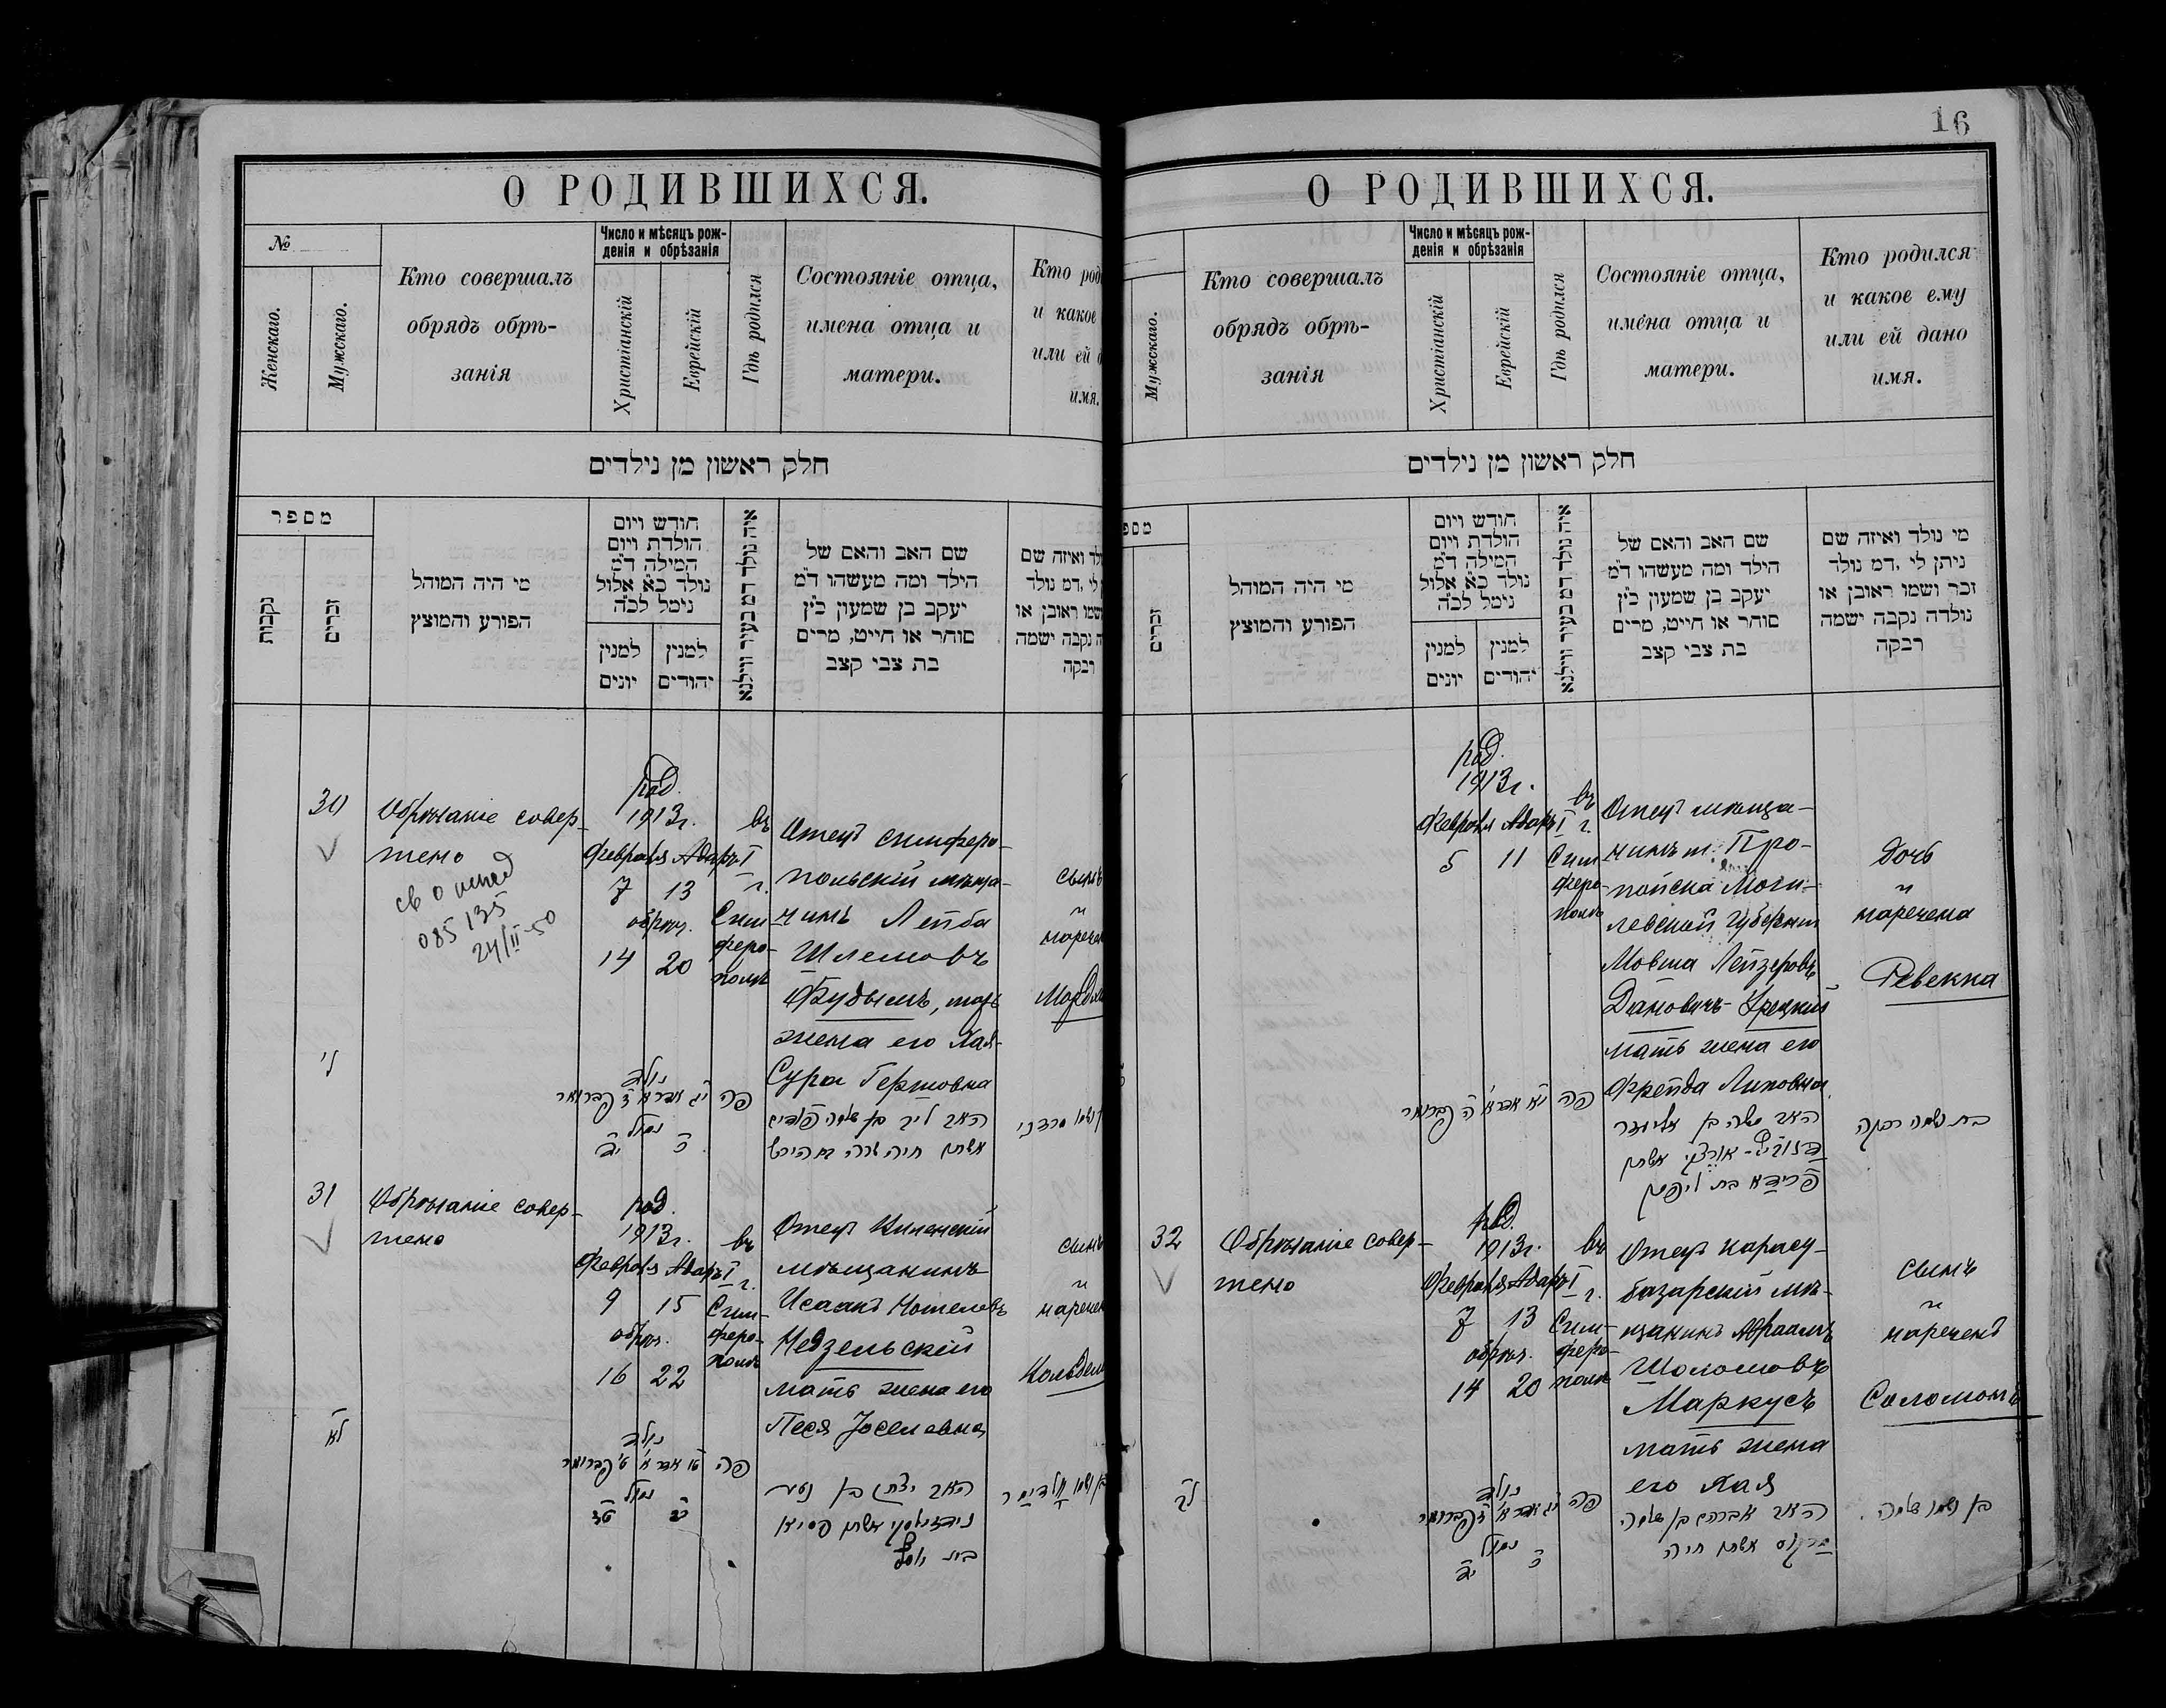 16
О РОДИВШИХСЯ.
№
Женскаго.
Мужскаго.
Кто совершалъ
обрядъ обрѣ-
занія
Число и мѣсяцъ рож-
денія и обрѣзанія
Христіанскій
Еврейскій
Гдѣ родился
Состояніе отца,
имена отца и
матери.
Кто род
и какое
или ей
имя.
חלק ראשון מן נילדים
מספר
נקבות
זכרים
מי היה המוהל
הפורע והמוצץ
חודש ויום
הולדת ויום
המילה ד"מ
נולד כ"א אלול
נימל לכ"ה
למנין
יונים
למנין
יהודים
איה נולד דמ בעיר ווילנא
שם האב והאם של
הילד ומה מעשהו ד"מ
יעקב בן שמעון כ"ץ
סוחר או חייט, מרים
בת צבי קצב
ולד ואיזה שם
לי ,דמ נולד
שמו ראובן או
ה נקבה ישמה
רבקה
30
Обрѣзаніе совер-
шено
085135
24/II-50
род.
1913г.
Февраля Адаръ I
7 13
обрѣз.
14 20
въ
г.
Сим-
феро-
полѣ
Отецъ симферо-
польскій мѣща-
нинъ Лейба
Шлемовъ
Фудымъ, мать
жена его Хая-
Сура Гершовна
сынъ
и
наречен
ל'
נולד
פה
נמול
האב ליב בן שלמה
אשתו חיה שרה
31
Обрѣзаніе совер-
шено
род.
1913г.
Февраля Адаръ I
9 15
обрѣз.
16 22
въ
г.
Сим-
феро-
полѣ
Отецъ
мѣщанинъ
Исаакъ
Недзельскій
мать жена его
Песя Іоселевна
сынъ
и
наречен
לא
נולד
פה
נמול
האב יצחק בן נטע
אשתו פסיא
בת יוסף
О РОДИВШИХСЯ.
Мужскаго.
Кто совершалъ
обрядъ обрѣ-
занія
Число и мѣсяцъ рож-
денія и обрѣзанія
Христіанскій
Еврейскій
Гдѣ родился
Состояніе отца,
имена отца и
матери.
Кто родился
и какое ему
или ей дано
имя.
חלק ראשון מן נילדים
מספ
זכרים
מי היה המוהל
הפורע והמוצץ
חודש ויום
הולדת ויום
המילה ד"מ
נולד כ"א אלול
נימל לכ"ה
למנין
יונים
למנין
יהודים
איה נולד דמ בעיר ווילנא
שם האב והאם של
הילד ומה מעשהו ד"מ
יעקב בן שמעון כ"ץ
סוחר או חייט, מרים
בת צבי קצב
מי נולד ואיזה שם
ניתן לי ,דמ נולד
זכר ושמו ראובן או
נולדה נקבה ישמה
רבקה
род.
1913г.
Февраля Адаръ I
5 11
въ
г.
Сим
феро-
полѣ
Отецъ мѣща-
нинъ м. Про-
пойска Моги-
левской губерніи
Мовша Лейзеровъ
Дановичъ-
мать жена его
Фрейда Липовна
дочь
и
наречена
Ревекка
פה
האב משה בן אליעזר
אשתו
פריידא בת ליפמן
בת ושמה רבקה
32
Обрѣзаніе совер-
шено
род.
1913г.
Февраля Адаръ I
7 13
обрѣз.
14 20
въ
г.
Сим-
феро-
полѣ
Отецъ карасу-
базарскій мѣ-
щанинъ Абраамъ
Шоломовъ
Маркусъ
мать жена
его Хая
сынъ
и
нареченъ
Соломонъ
לב
נולד
פה
נמול
האב אברהם בן שלמה
מרקוס אשתו חיה
בן ושמו שלמה